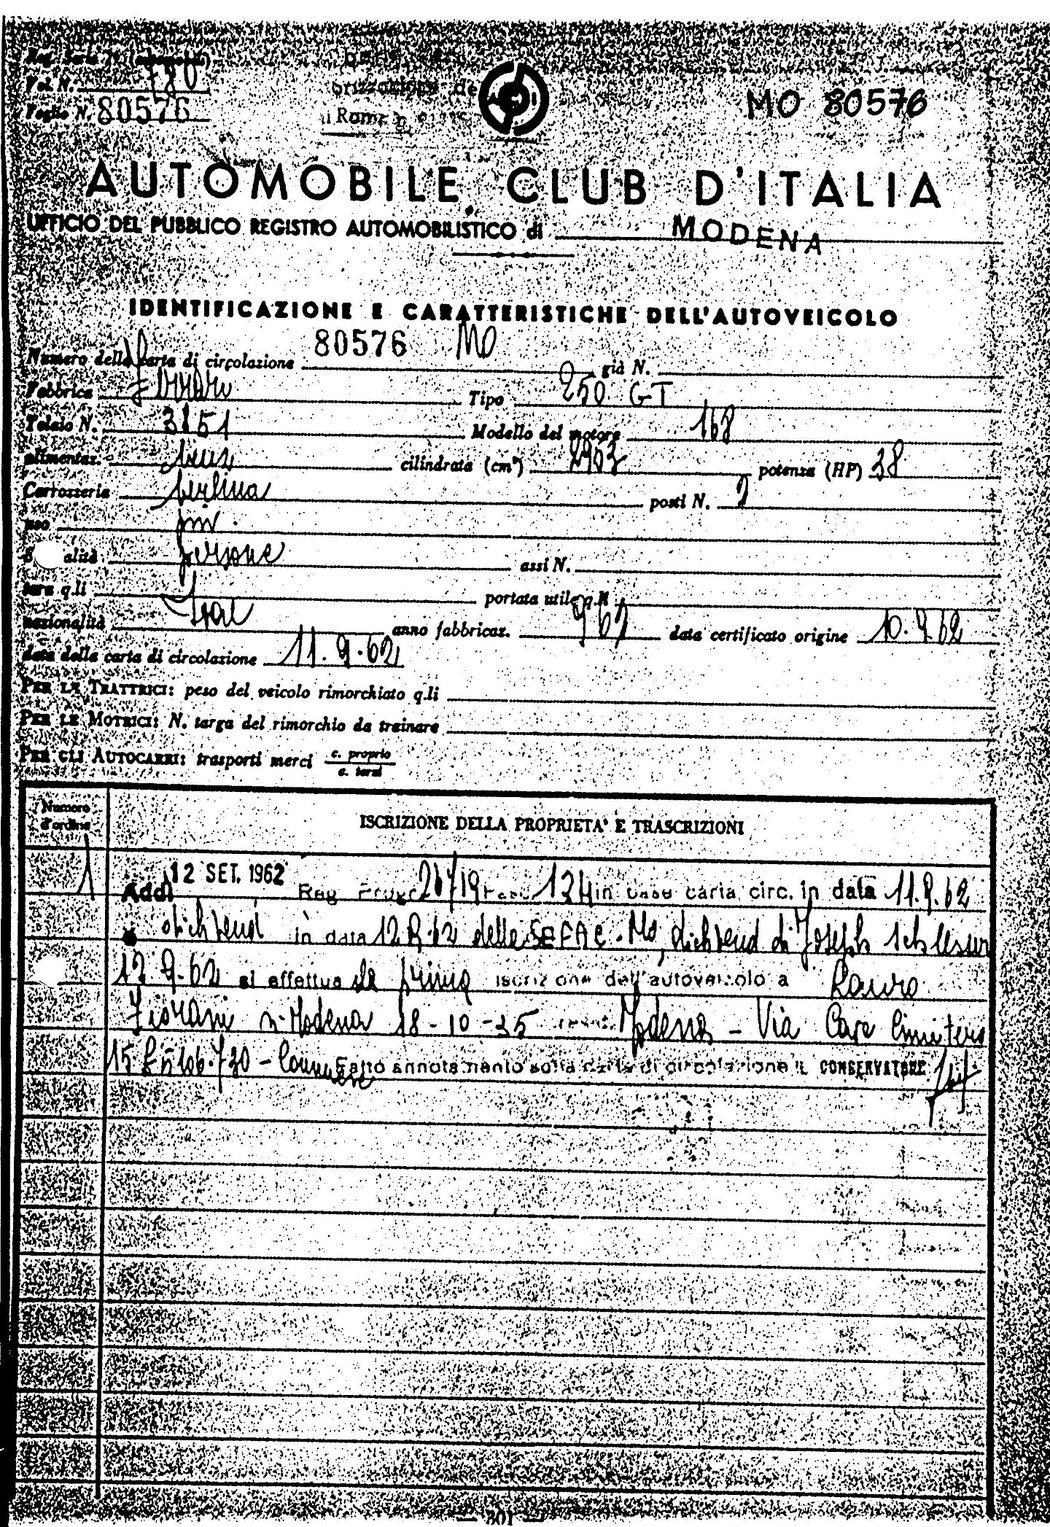 Reg. Serie N. (automobili)
Vol. N. 780
Foglio N. 80576
MO 80576
Roma
AUTOMOBILE CLUB D'ITALIA
UFFICIO DEL PUBBLICO REGISTRO AUTOMOBILISTICO di MODENA
IDENTIFICAZIONE E CARATTERISTICHE DELL'AUTOVEICOLO
Numero della carta di circolazione 80576 MO già N.
Fabbrica Ferrari Tipo 250 GT
Telaio N. 3851 Modello del motore 168
alimentaz. cilindrata (cm³) 2953 potenza (HP) 38
Carrozzeria berlina posti N. 2
uso priv.
alità persone assi N.
tara q.li portata utile q.li
nazionalità Ital anno fabbricaz. 962 data certificato origine 10.9.62
data della carta di circolazione 11.9.62
PER LE TRATTRICI: peso del veicolo rimorchiato q.li
PER LE MOTRICI: N. targa del rimorchio da trainare
PER GLI AUTOCARRI: trasporti merci c. proprio
c. terzi
Numero d'ordine
ISCRIZIONE DELLA PROPRIETA' E TRASCRIZIONI
1 Addì 12 SET. 1962 Reg. Progr. 26719 124 in base carta circ. in data 11.9.62
dichiend in data 12.9.62 delle SEFAC. Mo, dichiend di Joseph Schlesser
12.9.62 si effettua la prima iscrizione dell'autoveicolo a Lauro
Fiorani n. Modena 18-10-35 Modena - Via Cave Cimitero
15 730 - Fatto annotamento sulla carta di circolazione IL CONSERVATORE
— 301 —